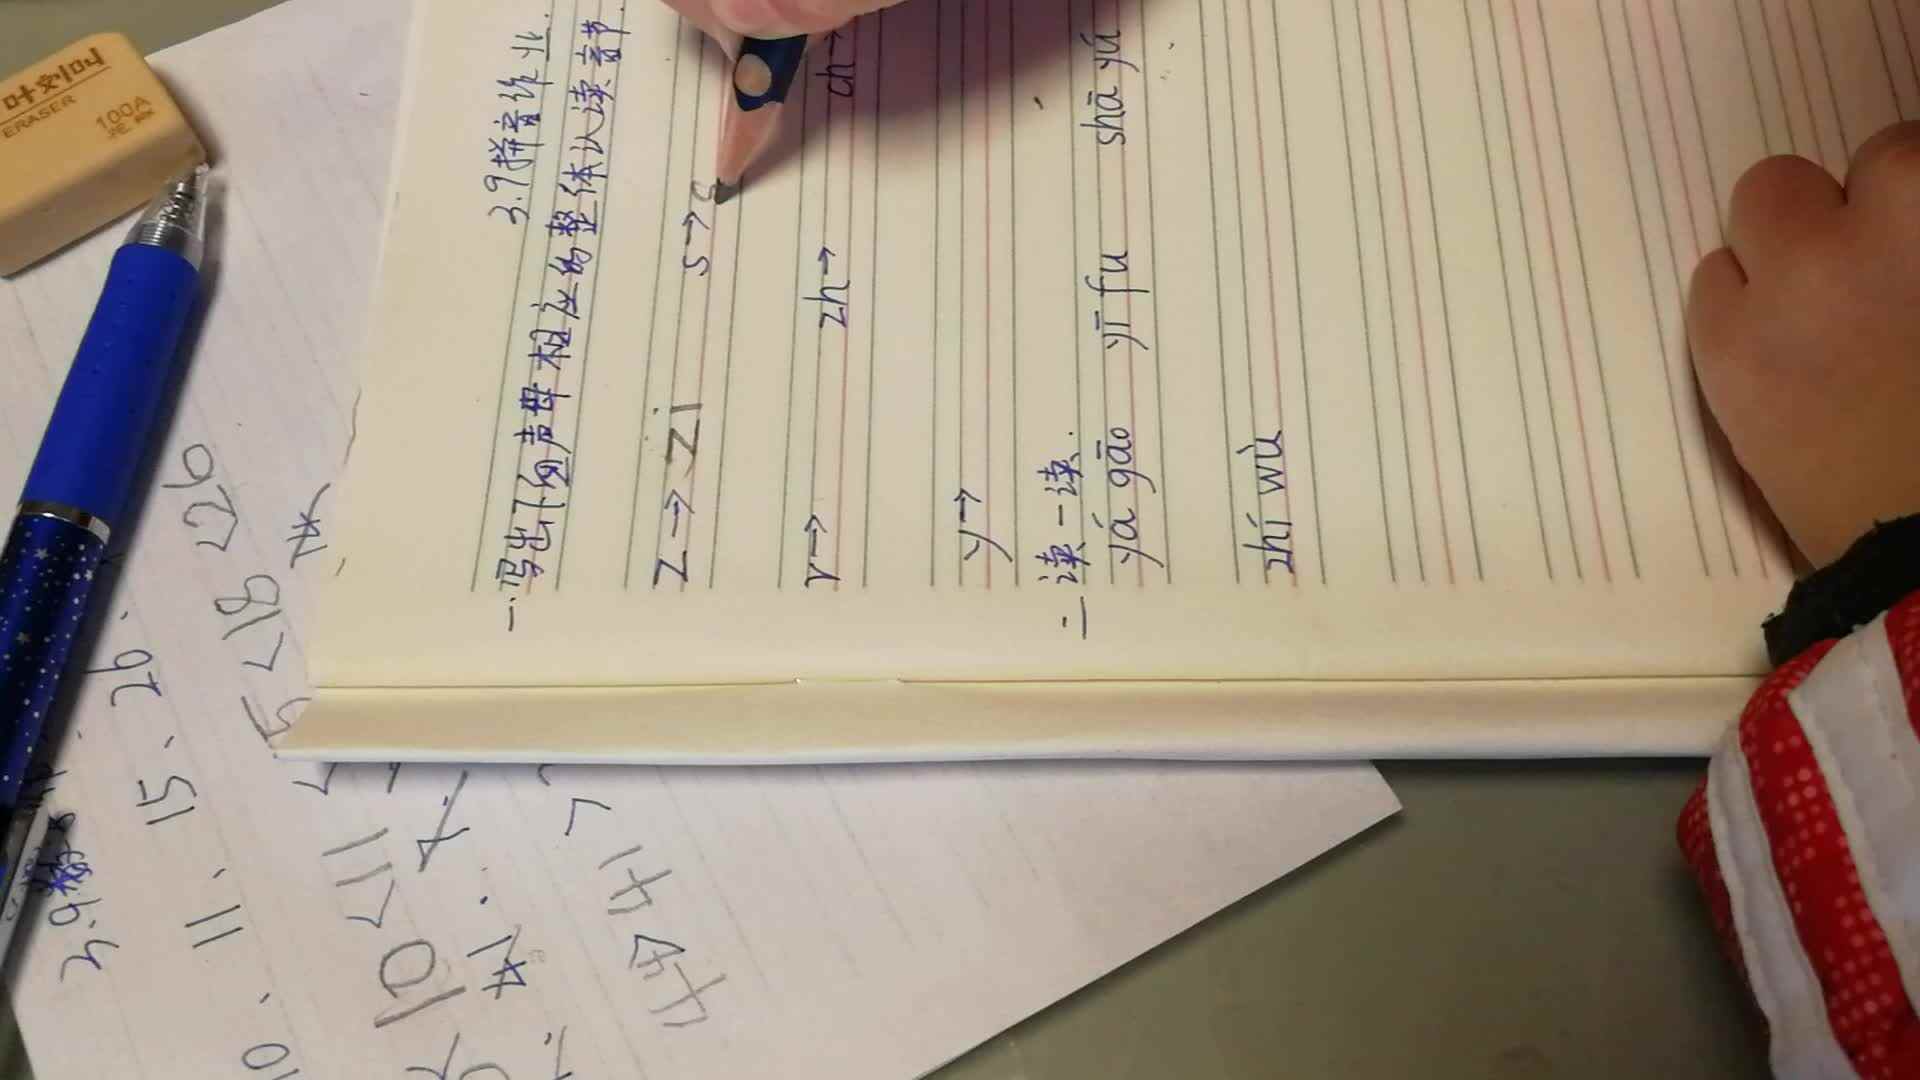 3.9拼音作业.
一.写出下面声母相应的整体认读音节.
z→zi s→s
r→ zh→ ch→
y→
二 读一读.
yá gāo yī fu shā yú
zhí wù
ERASER
100A
3.9数
10、11、15、26、
10<11
<18<26
44 > 41 >